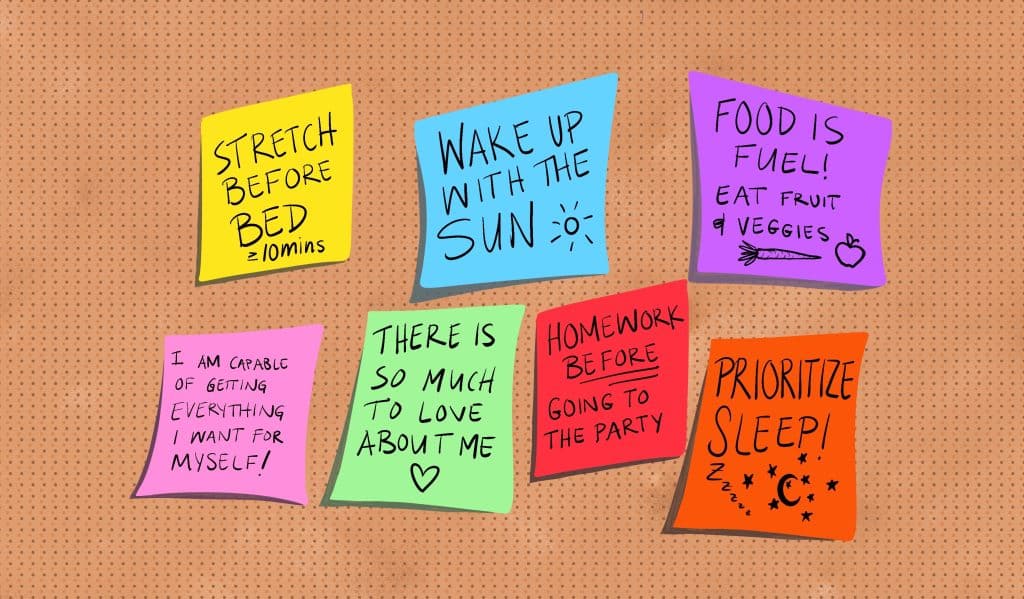 STRETCH
BEFORE
BED
≥10mins
WAKE UP
WITH THE
SUN
FOOD IS
FUEL!
EAT FRUIT
& VEGGIES
I AM CAPABLE
OF GETTING
EVERYTHING
I WANT FOR
MYSELF!
THERE IS
SO MUCH
TO LOVE
ABOUT ME
HOMEWORK
BEFORE
GOING TO
THE PARTY
PRIORITIZE
SLEEP!
Zzzzzz